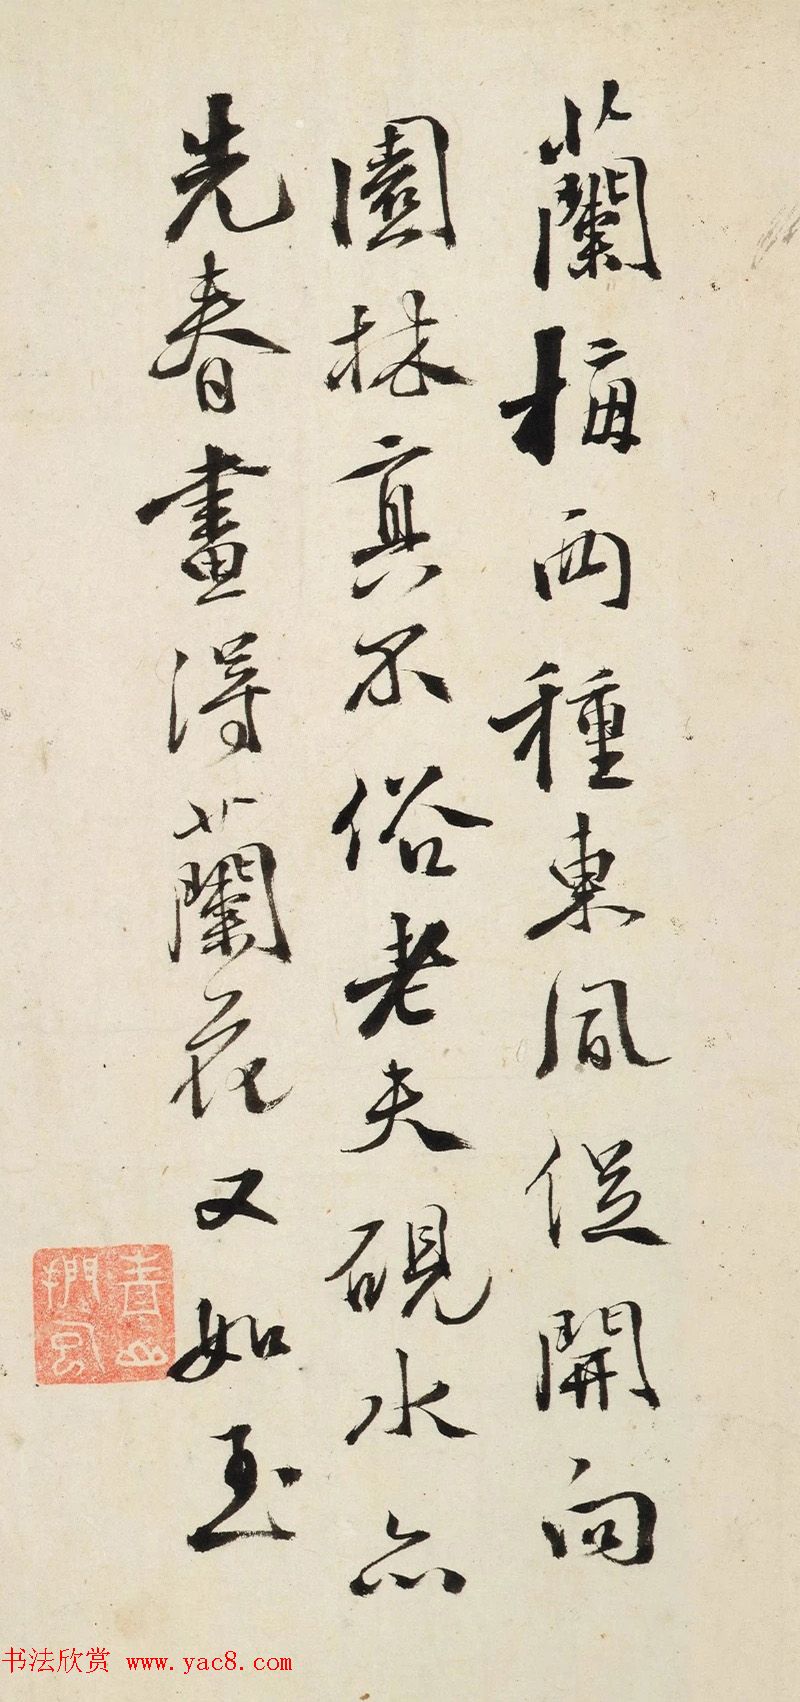 蘭梅兩種東風促開向
園林真不俗老夫硯水亦
先春畫得蘭花又如玉
书法欣赏 www.yac8.com